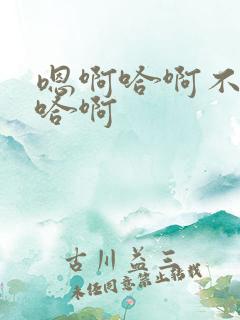 嗯啊哈啊不
哈啊
古川益三
未经同意禁止转载